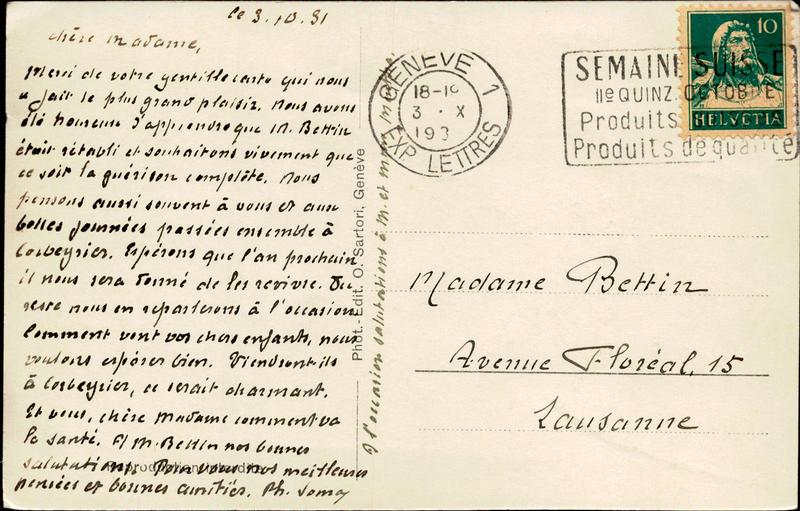 le 3.10.31
chère Madame,
Merci de votre gentille carte qui nous
a fait le plus grand plaisir. Nous avons
été heureux d'apprendre que M. Bettin
était rétabli et souhaitons vivement que
ce soit la guérison complète. Nous
pensons aussi souvent à vous et aux
belles journées passées ensemble à
Corbeyrier. Espérons que l'an prochain
il nous sera donné de les revivre. Du
reste nous en reparlerons à l'occasion
Comment vont vos chers enfants, nous
voulons espérer bien. Viendront-ils
à Corbeyrier, ce serait charmant.
Et vous, chère Madame comment va
la santé. A M. Bettin nos bonnes
salutations. Pour vous nos meilleures
pensées et bonnes amitiés. Ph.
Reproduction interdite
Phot.-Edit. O. Sartori, Genève
à l'occasion salutations à M. et
GENÈVE 1
18-19
3 . X
193
EXP. LETTRES
SEMAINE SUISSE
IIe QUINZ. OCTOBRE
Produits
Produits de qualité
10
HELVETIA
Madame Bettin
Avenue Floréal, 15
Lausanne